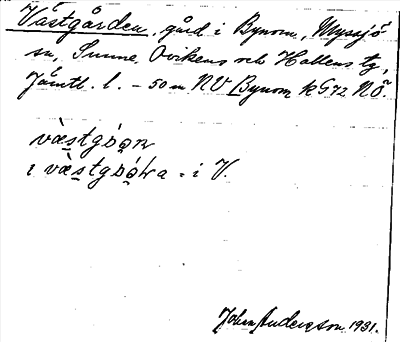 Västgården, gård i Bynom, Myssjö
sn, Sunne, Ovikens och Hallens tg,
Jämtl. l. – 50 m NV Bynom k G72 NÖ.
i = i V.
Johan Anderson 1931.